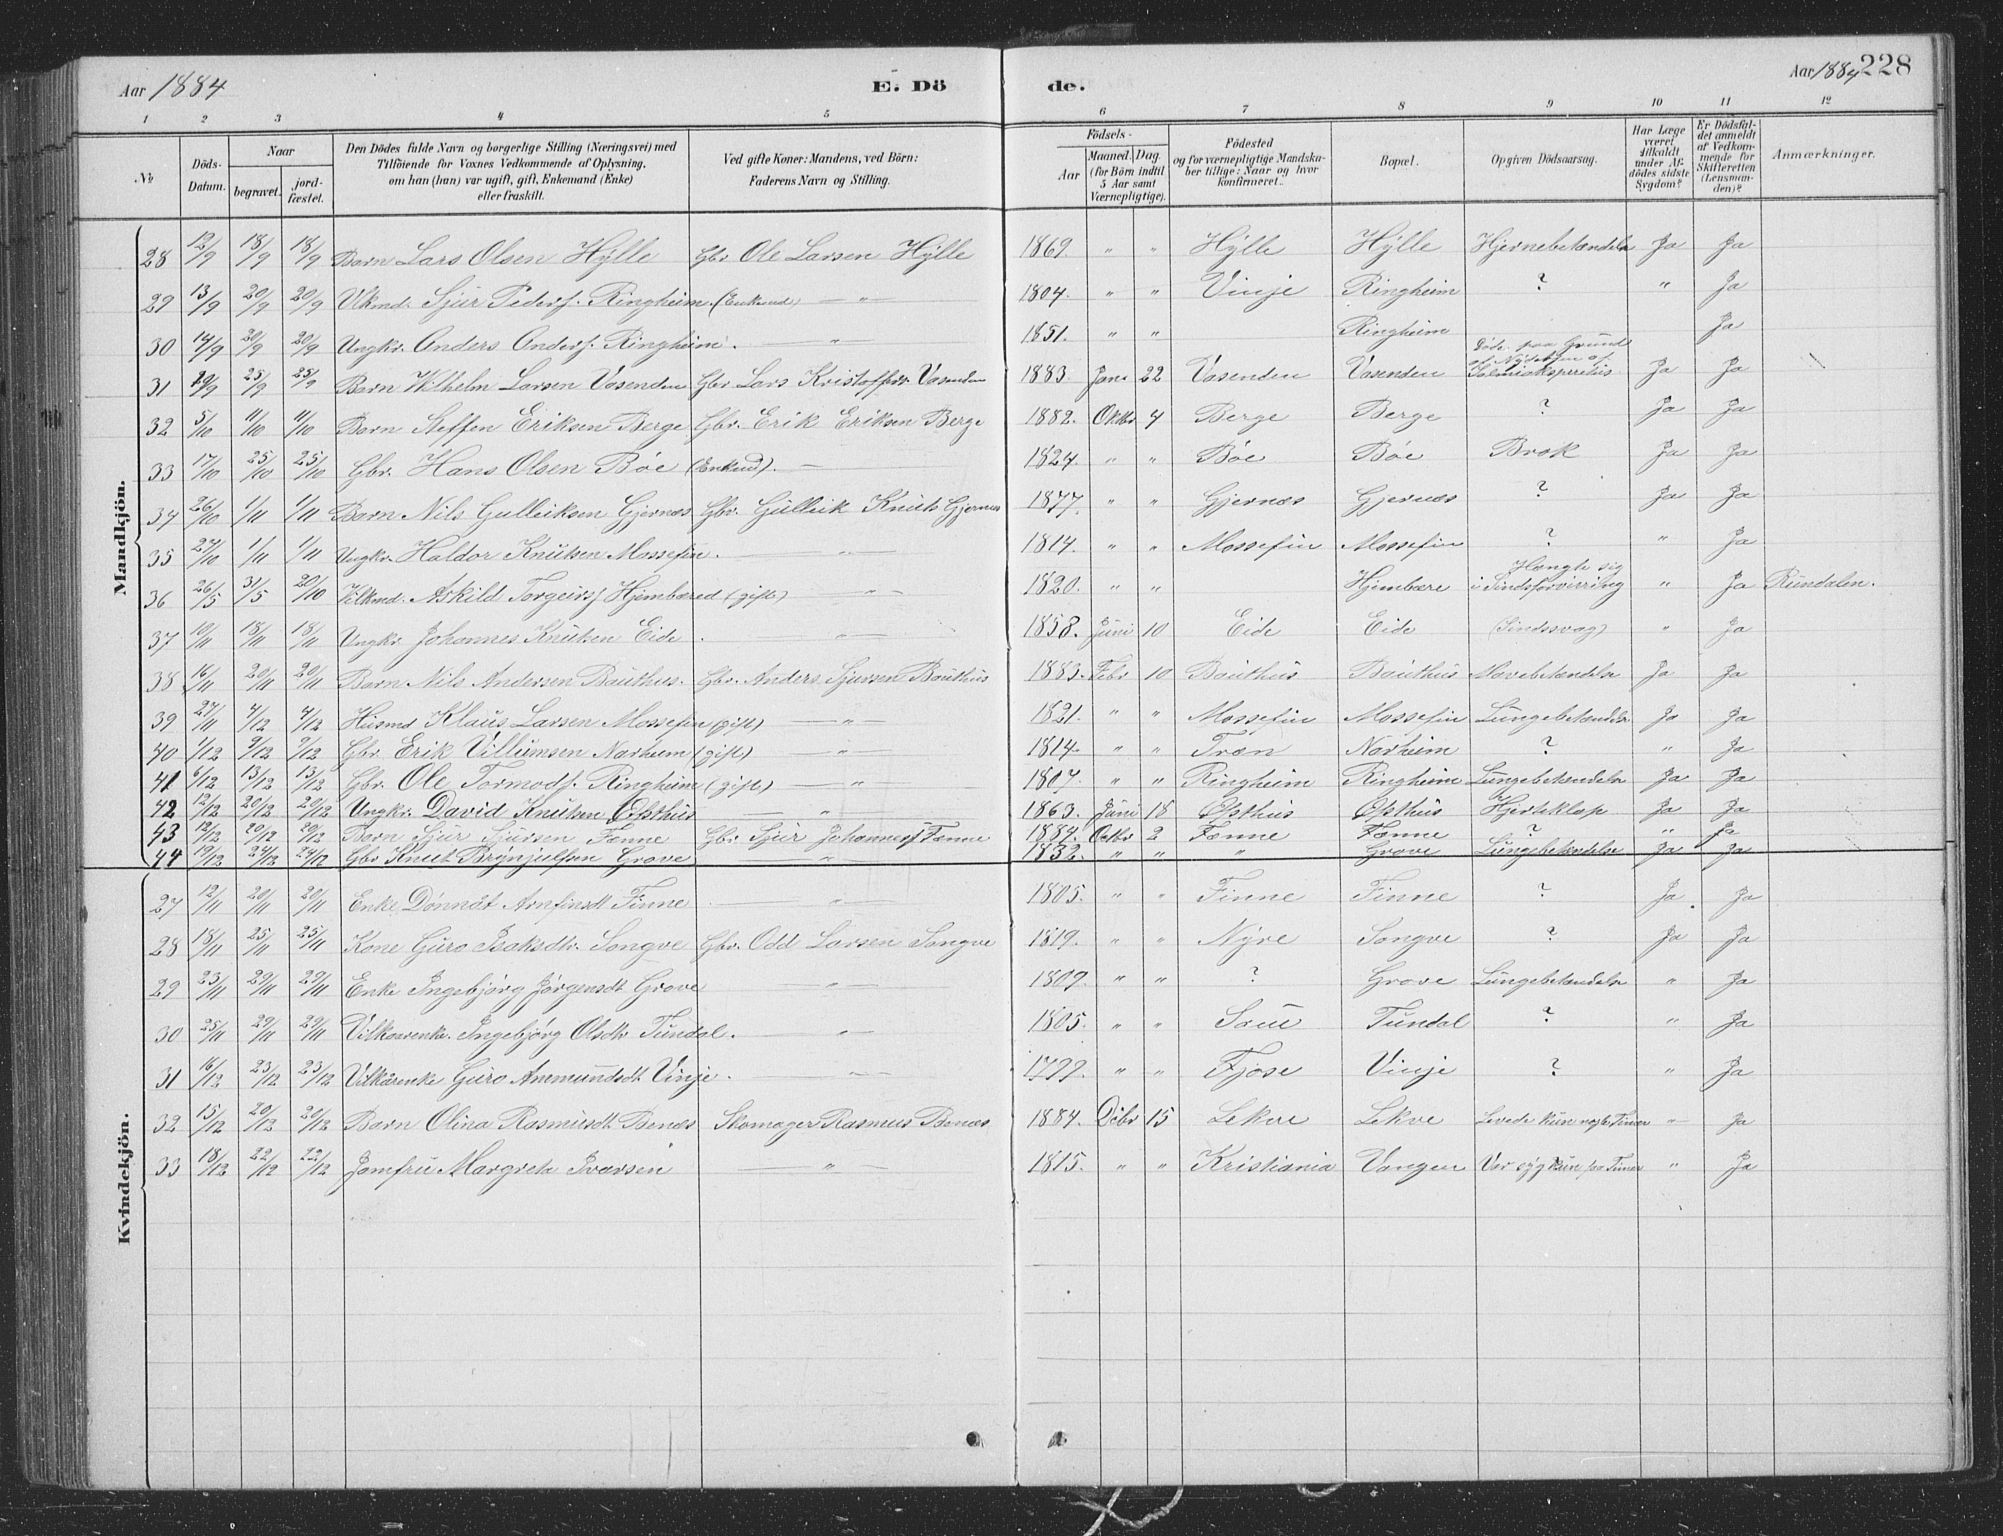 Aar 1884 E. Dö de. Aar 1884 228
1 2 3 4 5 6 7 8 9 10 11 12
No Döds-Datum. Naar begravet. jord-fæstet. Den Dödes fulde Navn og borgerlige Stilling (Næringsvei) med Tilföiende for Voxnes Vedkommende af Oplysning, om han (hun) var ugift, gift, Enkemand (Enke) eller fraskilt. Ved gifte Koner: Mandens, ved Börn: Faderens Navn og Stilling. Födsels- Aar Maaned. Dag. (for Börn indtil 5 Aar samt Værnepligtige). Födested og for værnepligtige Mandskaber tillige: Naar og hvor konfirmeret. Bopæl. Opgiven Dödsaarsag. Har Læge været tilkaldt under Afdödes sidste Sygdom? Er Dödsfaldet anmeldt af Vedkommende for Skifteretten (Lensmanden)? Anmærkninger.
Mandkjön.
28 12/9 18/9 18/9 Barn Lars Olsen Hylle Gbr Ole Larsen Hylle 1869. " " Hylle Hylle Hjernebetændelse Ja Ja
29 13/9 20/9 20/9 Vkmd. Sjur Peders. Ringheim. (Enkemd) — " — 1804. " " Vinje Ringheim ? " Ja
30 14/9 20/9 20/9 Ungkr. Anders Anders. Ringheim. — " — 1851. " " Ringheim Ja
31 19/9 25/9 25/9 Barn Wilhelm Larsen Vasenden Gbr Lars Kristoffers. Vasenden 1883. Jan. 22 Vasenden Vasenden Døde paa Grund af Nydelsen af Salmiakspiritus Ja Ja
32 5/10 11/10 11/10 Barn Steffen Eriksen Berge Gbr. Erik Eriksen Berge 1882. Oktbr 4 Berge Berge ? Ja Ja
33 17/10 25/10 25/10 Gbr. Hans Olsen Bøe (Enkmd). — 1824. " " Bøe Bøe Brok Ja Ja
34 26/10 1/11 1/11 Barn Nils Gulleiksen Gjernæs Gbr. Gulleik Knuts. Gjernæs 1877. " " Gjernæs Gjernæs ? Ja Ja
35 27/10 1/11 1/11 Ungkr. Haldor Knutsen Mossefin. — " — 1814. " " Mossefin Mossefin ? " Ja
36 26/5 31/5 20/10 Vilkmd. Askild Torgeirs. Hjembæred (gift) — " — 1820. " " Hjembære Hængte sig i Sindsforvirring " Ja Rundalen.
37 10/11 18/11 18/11 Ungkr Johannes Knutsen Eide . — " — 1858. Juni 10 Eide Eide (Sindssvag) " Ja
38 16/11 20/11 20/11 Barn Nils Andersen Bauthus. Gbr. Anders Sjursen Bauthus 1883. Febr 10 Bauthus Bauthus Mavebetændelse Ja Ja
39 27/11 4/12 4/12 Husmd Klaus Larsen Mossefin (gift) — " — 1821. " " Mossefin Mossefin Lungebetændelse Ja Ja
40 1/12 9/12 9/12 Gbr. Erik Villumsen Narheim (gift) — " — 1814. " " Træn Narheim ? " Ja
41 6/12 13/12 13/12 Gbr. Ole Tormods. Ringheim (gift) — " — 1807. " " Ringheim Ringheim Lungebetændelse Ja Ja
42 12/12 20/12 20/12 Ungkr. David Knutsen Østhus — " — 1863. Juni 18 Østhus Østhus Hjerteklap Ja Ja
43 12/12 20/12 20/12 Barn Sjur Sjursen Tænne Gbr. Sjur Johannes. Tænne 1884. Octbr 2 Tænne Tænne ? " Ja
44 19/12 24/12 24/12 Gbr Knut Brynjulfsen Grove — " — 1832. " " " Grove Lungebetændelse Ja Ja
Kvindekjön.
27 12/11 20/11 20/11 Enke Dønnat Arnfinsdt Finne . — " — 1805. " " Finne Finne ? Ja Ja
28 18/11 25/11 25/11 Kone Guro Isaksdtr. Songve Gbr. Odd Larsen Songve 1819. " " Nyre Songve ? Ja Ja
29 23/11 29/11 29/11 Enke Ingebjørg Jørgensdt Grove — " — 1809. " " ? Grove Lungebetændelse " Ja
30 25/11 29/11 29/11 Vilkaarenke. Ingebjørg Olsdtr Tundal. — " — 1805. " " Saue Tundal ? " Ja
31 16/12 23/12 23/12 Vilkårenke Guro Anmundsdt Vinje. — " — 1799. " " Fjose Vinje ? " Ja
32 15/12 20/12 20/12 Barn Olina Rasmusdt Benæs Skomager Rasmus Benæs 1884. Debr 15 Lekve Lekve Levede kun nogle Timer " Ja
33 18/12 22/12 22/12 Jomfru Margrete Iversen — " — 1815. " " Kristiania Vangen Var syg kun paa Timer " Ja